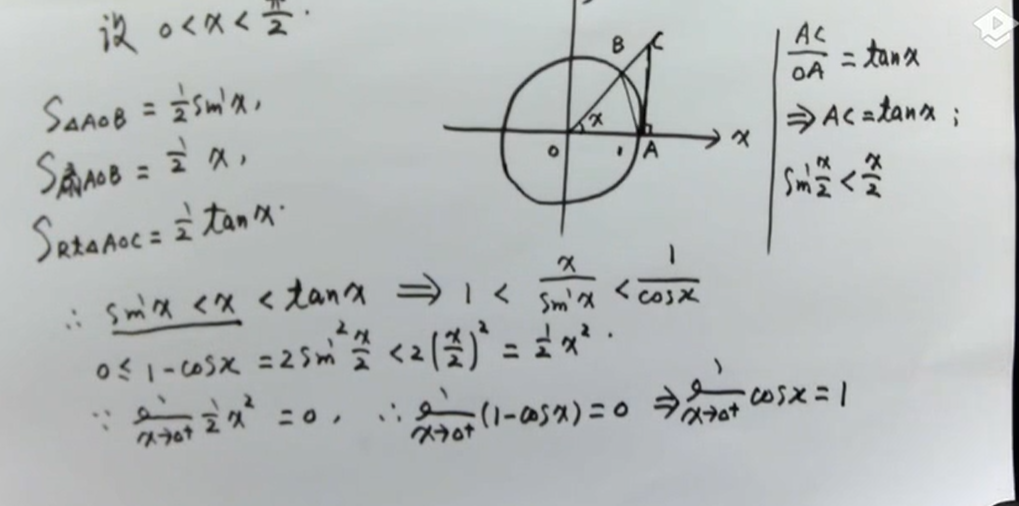 设 0<x<π/2.
S△AOB = 1/2 sin x,
S扇AOB = 1/2 x,
SRt△AOC = 1/2 tan x.
B C
x
O 1 A x
AC/OA = tan x
⇒ AC = tan x ;
sin x/2 < x/2
∴ sin x < x < tan x ⇒ 1 < x/sin x < 1/cos x
0 ≤ 1-cos x = 2 sin² x/2 < 2(x/2)² = 1/2 x² .
∵ lim x→0⁺ 1/2 x² = 0 , ∴ lim x→0⁺ (1-cos x) = 0 ⇒ lim x→0⁺ cos x = 1